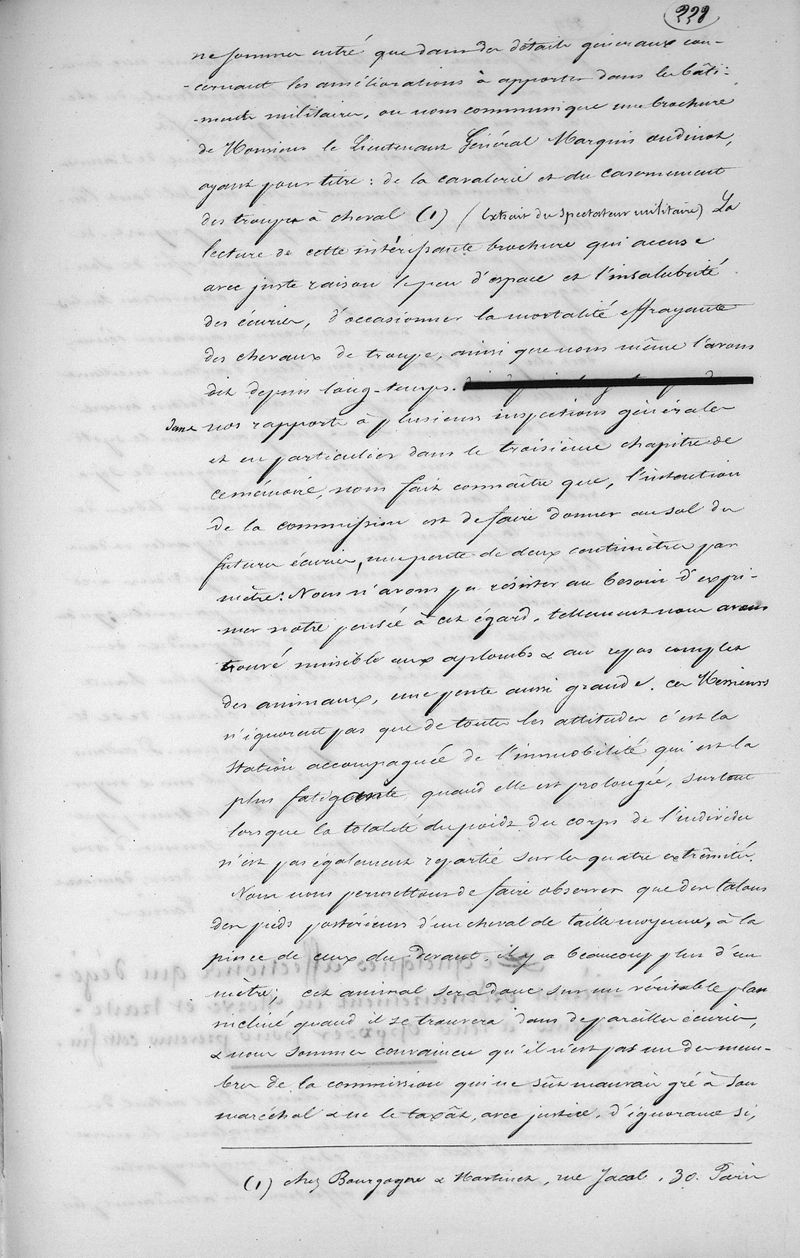 228
ne sommes entré que dans des détails généraux con-
-cernant les améliorations à apporter dans les bâti-
-ments militaires, on nous communique une brochure
de Monsieur le Lieutenant Général Marquis oudinot,
ayant pour titre : de la cavalerie et du casernement
des troupes à cheval (1) (Extrait du Spectateur militaire) La
lecture de cette intéressante brochure qui accuse
avec juste raison le peu d'espace et l'insalubrité
des écuries, d'occasionner la mortalité effrayante
des chevaux de troupe, ainsi que nous même l'avons
dit depuis long-temps.
dans nos rapports à plusieurs inspections générales
et en particulier dans le troisième chapitre de
ce mémoire, nous fait connaître que, l'intention
de la commission est de faire donner au sol des
futures écuries, une pente de deux centimètres par
mètre : Nous n'avons pu résister au besoin d'expri-
-mer notre pensée à cet égard, tellement nous avons
trouvé nuisible aux aplombs & au repos complet
des animaux, une pente aussi grande. ces Messieurs
n'ignorent pas que de toutes les attitudes c'est la
station accompagnée de l'immobilité qui est la
plus fatigante quand elle est prolongée, surtout
lorsque la totalité du poids du corps de l'individu
n'est pas également repartie sur les quatre extrêmités.
Nous nous permettons de faire observer que des talons
des pieds postérieurs d'un cheval de taille moyenne, à la
pince de ceux du devant, il y a beaucoup plus d'un
mètre; cet animal sera donc sur un véritable plan
incliné quand il se trouvera dans de pareilles écuries,
& nous sommes convaincu qu'il n'est pas un des mem-
bres de la commission qui ne sût mauvais gré à son
maréchal & ne le taxât, avec justice, d'ignorance si,
(1) chez Bourgogne & Martinet, rue Jacob, 30. Paris